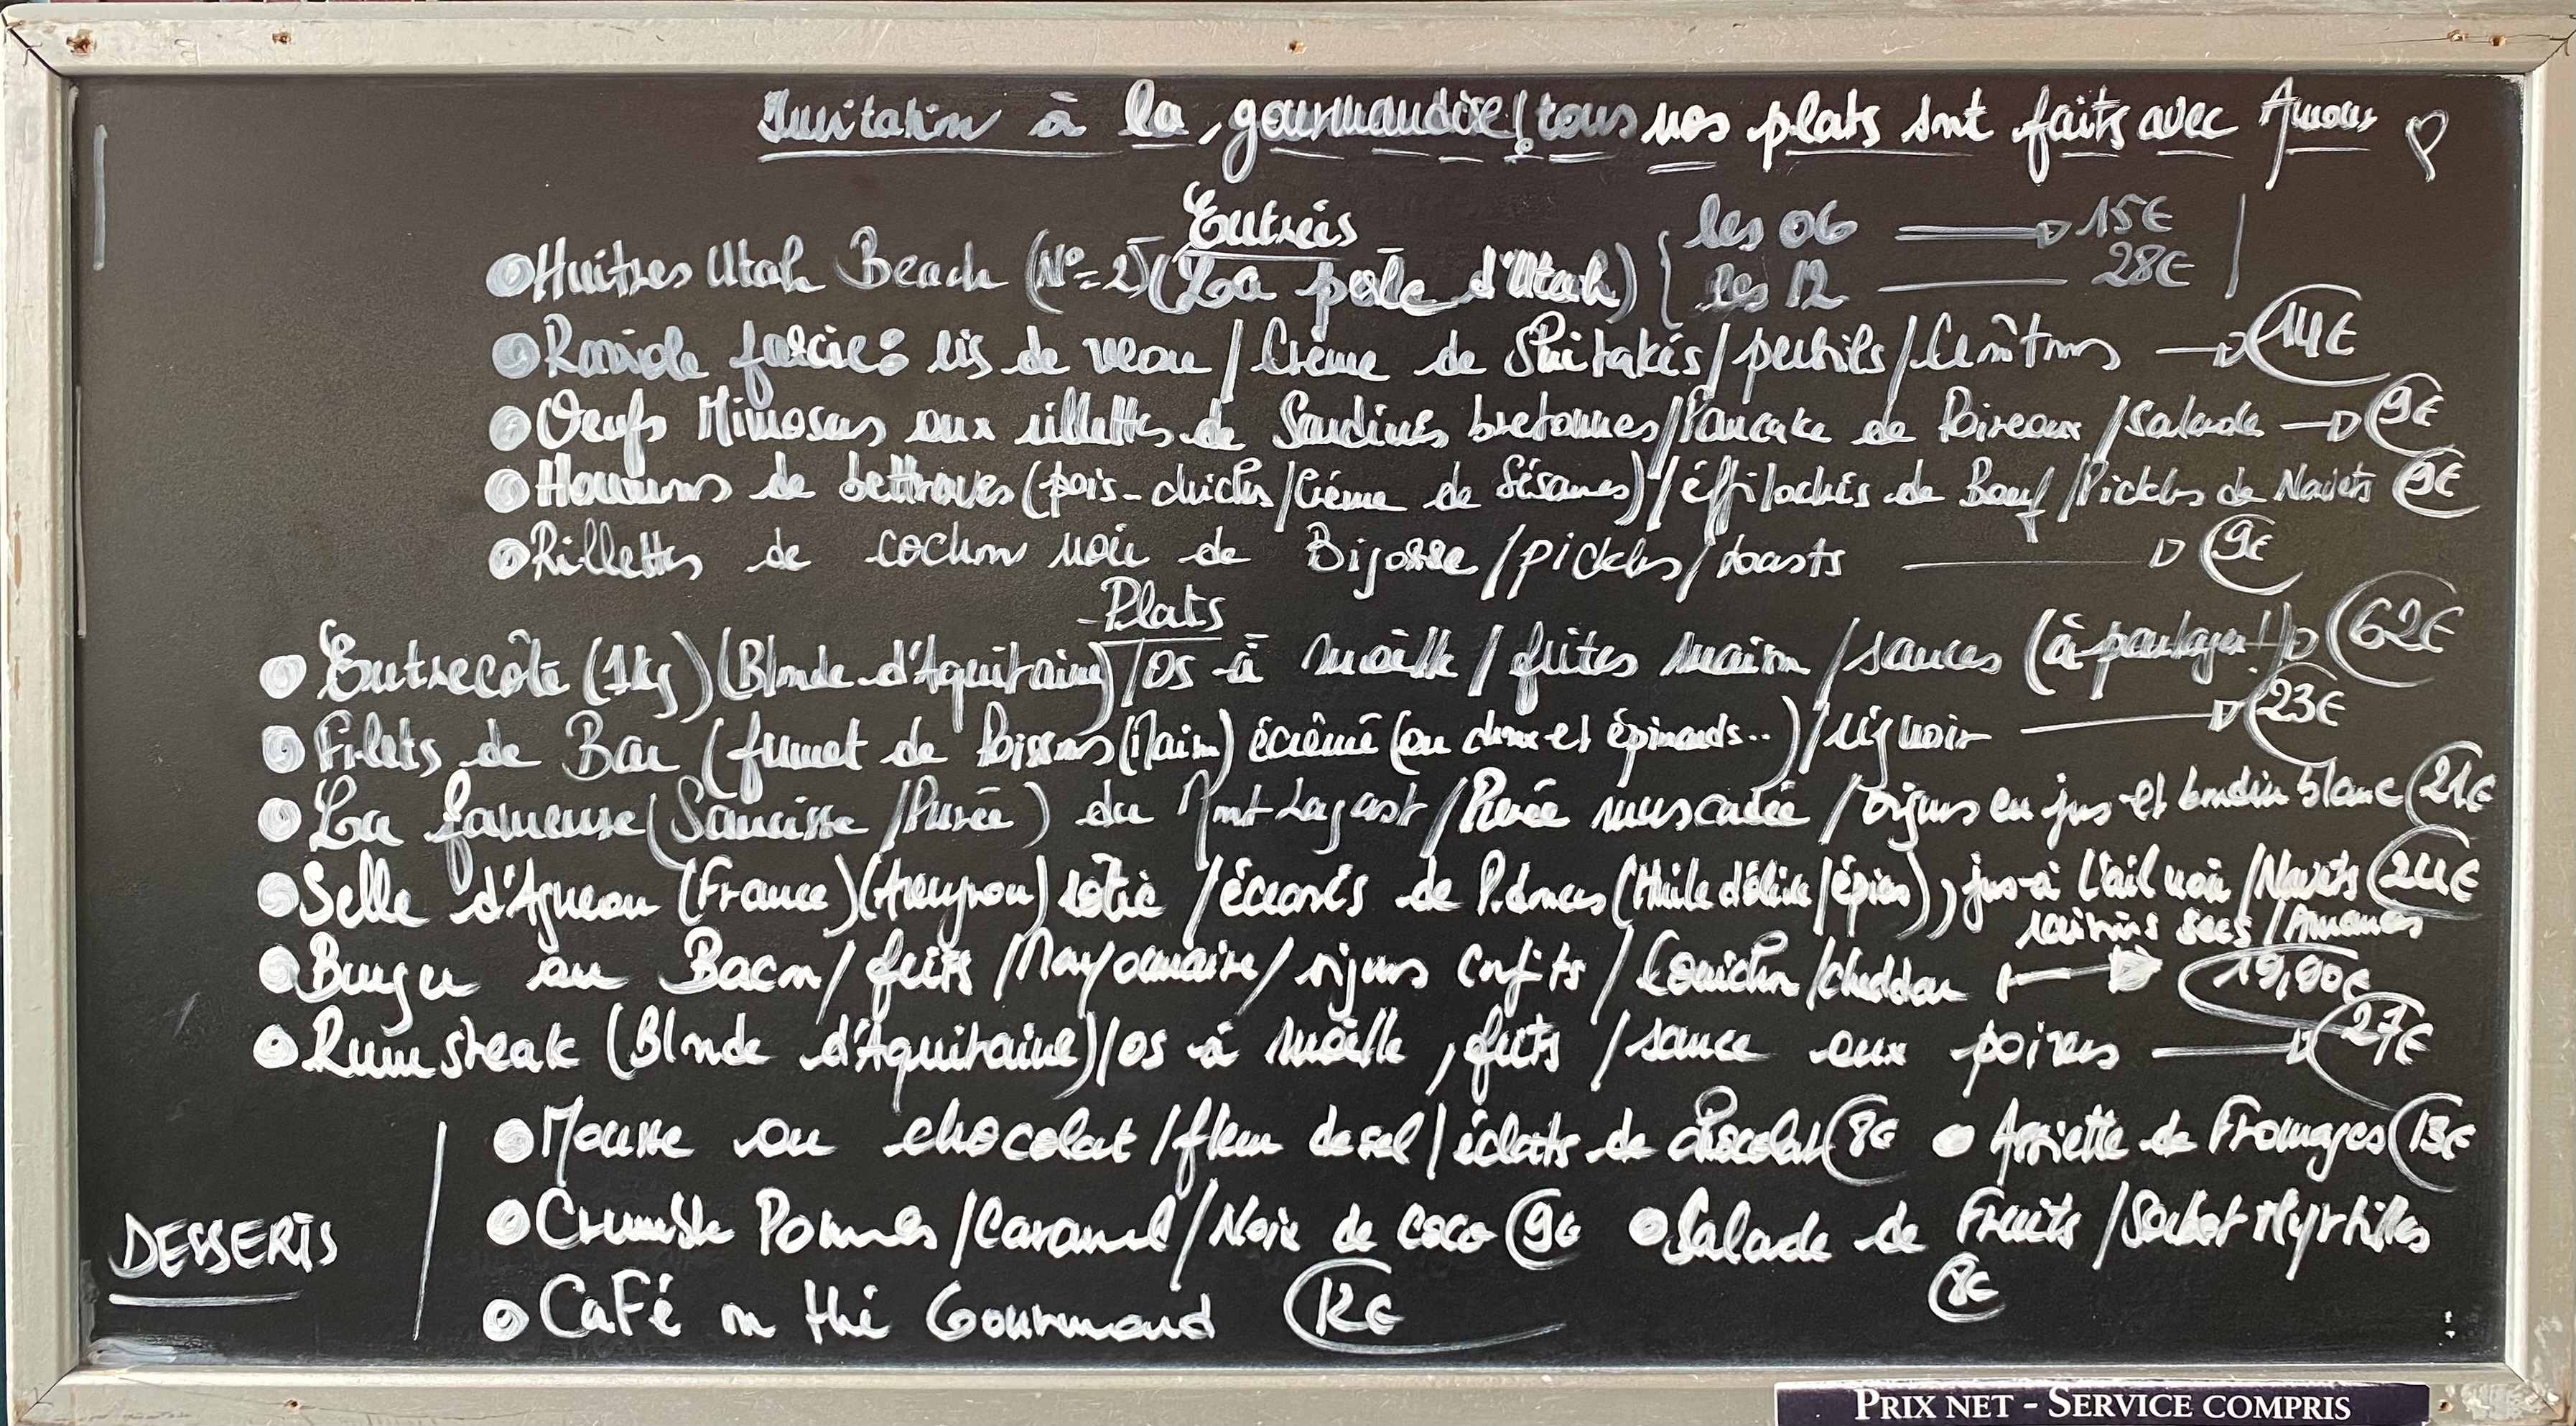 Invitation à la gourmandise! tous nos plats sont faits avec Amour
Entrées
Huitres Utah Beach (N°=2) (La perle d'Utah) { les 06 → 15€
les 12 — 28€
Raviole farcie: ris de veau / Crème de Shitakés / persils / Croûtons → 14€
Oeufs Mimosas aux rillettes de Sardines bretonnes / Pancake de Poireaux / salade → 9€
Houmous de bettraves (pois-chiches / Crème de Sésames) / éffilochés de Boeuf / Pickles de Navets 9€
Rillettes de cochon noir de Bigorre / pickles / toasts → 9€
Plats
Entrecôte (1kg) (Blonde d'Aquitaine) / os à moëlle / frites maison / sauces (à partager!) → 62€
Filets de Bar (fumet de Poissons (Maison) écrémé (au choux et épinards..) / riz noir → 23€
La fameuse (Saucisse / Purée) du Mont Lagast / Purée muscadée / oignons en jus et boudin blanc 21€
Selle d'Agneau (France) (Aveyron) rôtie / écrasés de P.dences (Huile d'olive / épices), jus à l'ail noir / Navets 24€
raisins secs / Amandes
Burger au Bacon / frites / Mayonnaise / oignons confits / Cornichon / cheddar → 19,90€
Rumsteak (Blonde d'Aquitaine) / os à moëlle, frites / sauce aux poivres → 27€
DESSERTS
Mousse au chocolat / fleur de sel / éclats de chocolat 8€
Assiette de Fromages 13€
Crumble Pommes / Caramel / Noix de Coco 9€
Salade de Fruits / Sorbet Myrtilles
8€
Café ou thé Gourmand 12€
PRIX NET - SERVICE COMPRIS